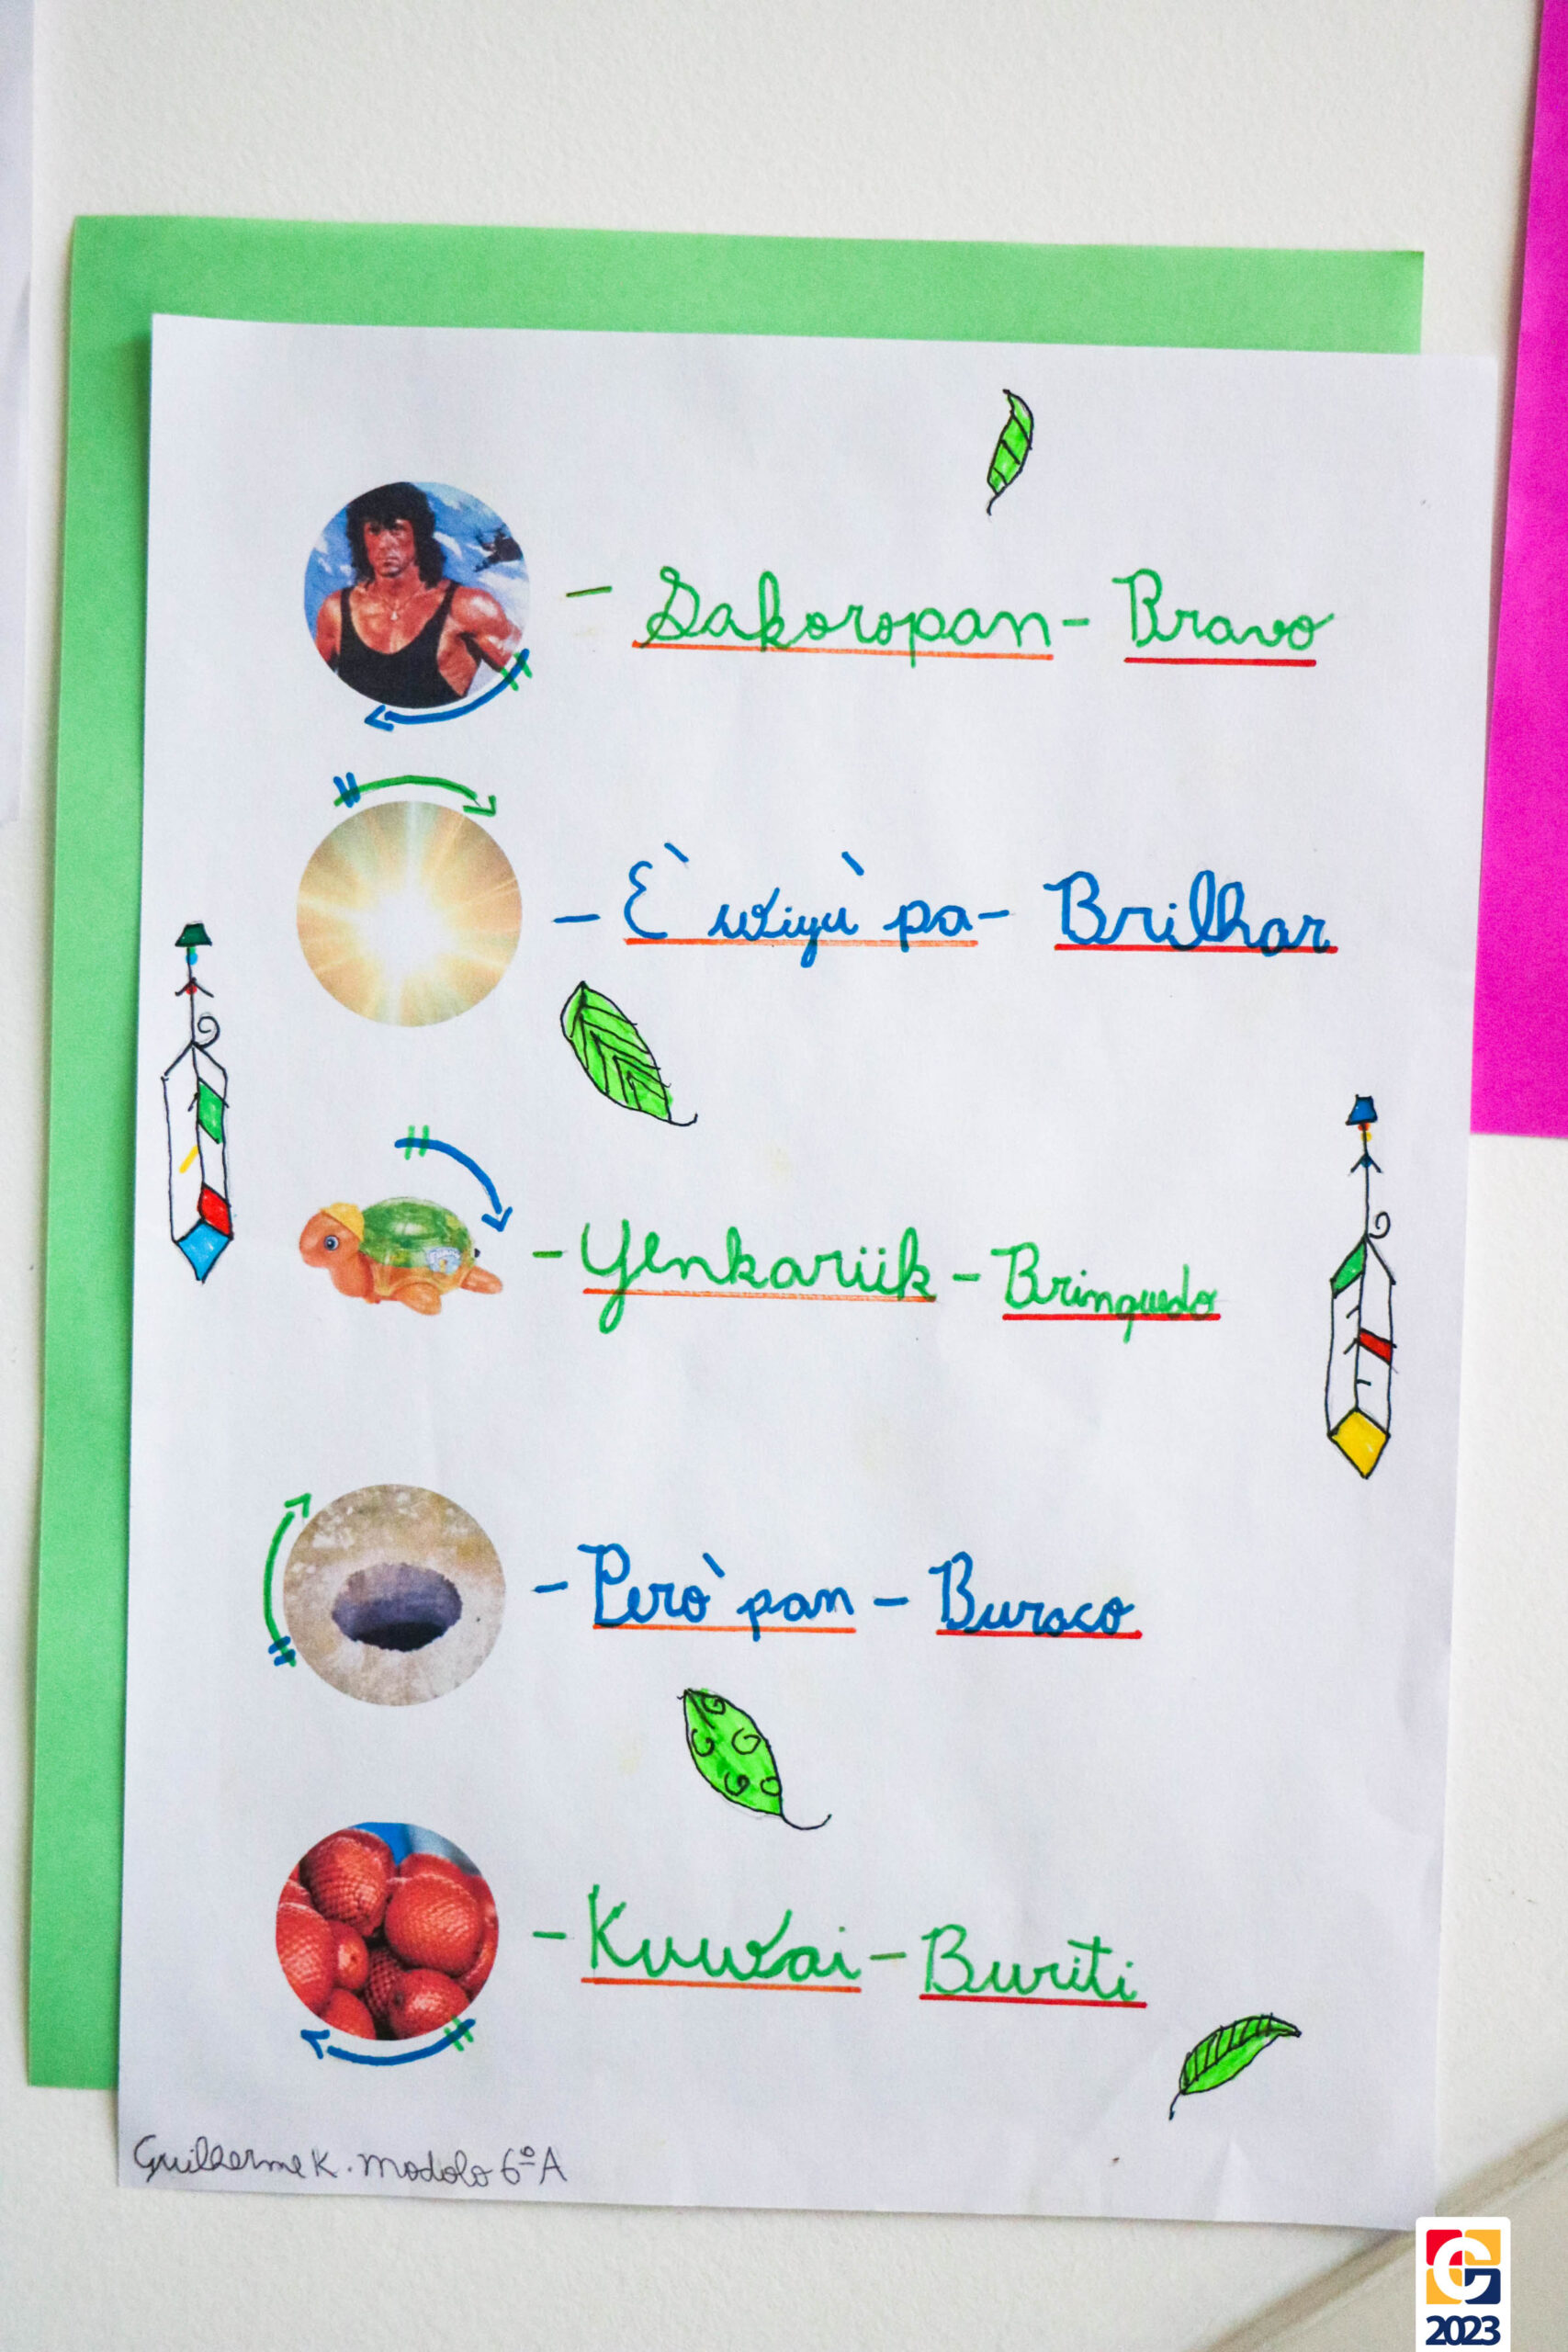 - Sakoropan - Bravo
- E` wkiyu` pa - Brilhar
- Yenkariik - Brinquedo
- Pero` pan - Buraco
- Kuwai - Buriti
Guilherme K. Modolo 6º A
2023